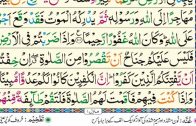 اللّٰهِ وَرَسُوْلِهٖ ثُمَّ يُدْرِكْهُ الْمَوْتُ فَقَدْ وَقَعَ اَجْرُهٗ
عَلَى اللّٰهِ وَكَانَ اللّٰهُ غَفُوْرًا رَّحِيْمًا وَاِذَا ضَرَبْتُمْ فِى الْاَرْضِ
فَلَيْسَ عَلَيْكُمْ جُنَاحٌ اَنْ تَقْصُرُوْا مِنَ الصَّلٰوةِ اِنْ خِفْتُمْ
اَنْ يَّفْتِنَكُمُ الَّذِيْنَ كَفَرُوْا اِنَّ الْكٰفِرِيْنَ كَانُوْا لَكُمْ عَدُوًّا مُّبِيْنًا
وَاِذَا كُنْتَ فِيْهِمْ فَاَقَمْتَ لَهُمُ الصَّلٰوةَ فَلْتَقُمْ طَآئِفَةٌ مِّنْهُمْ